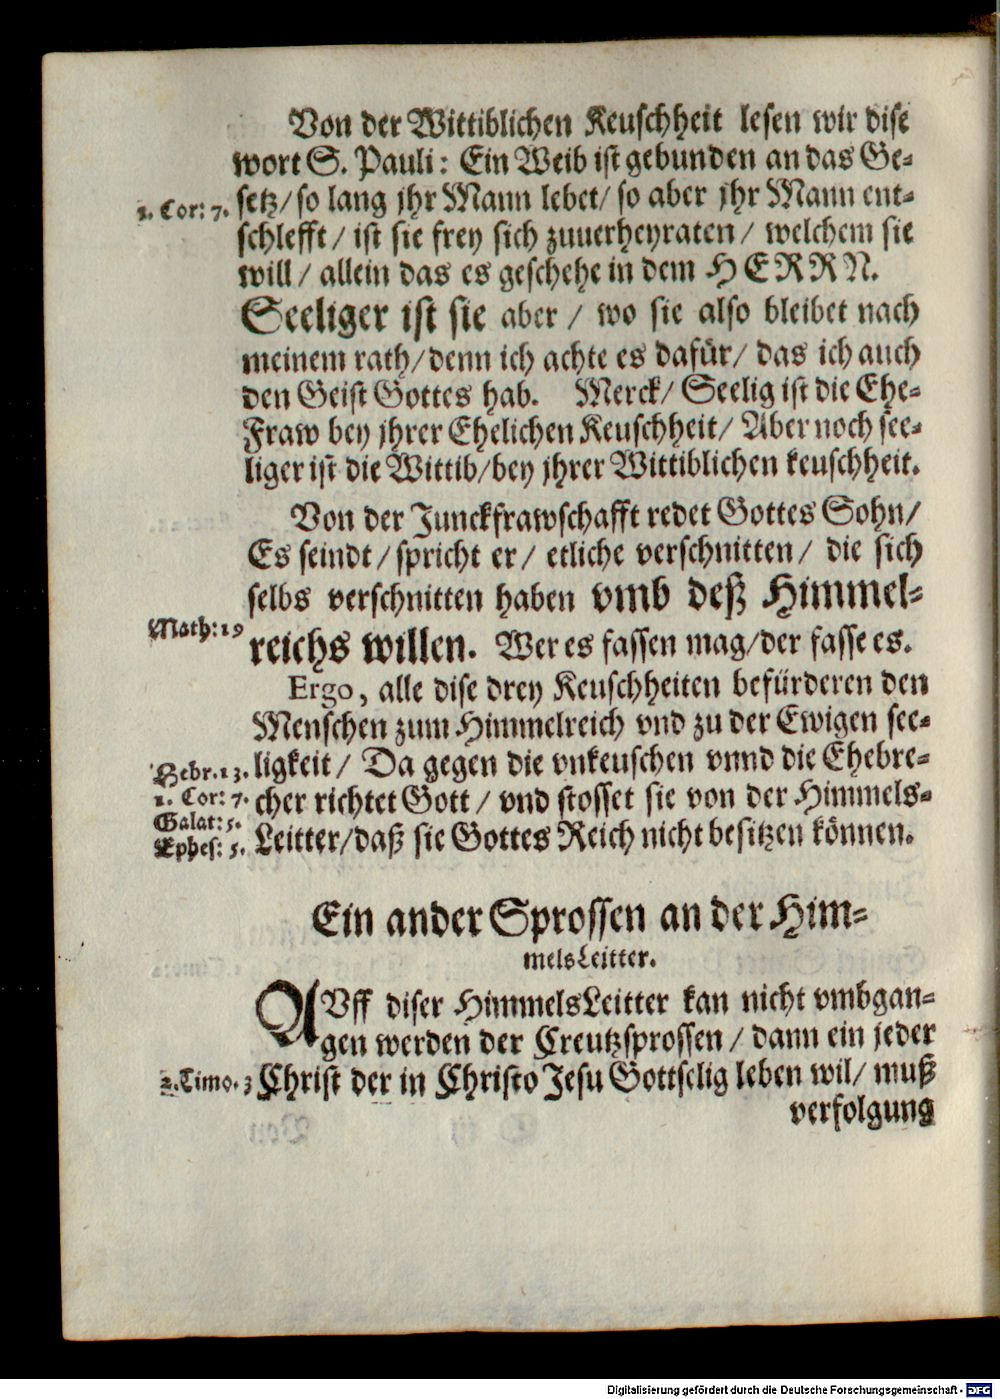 Von der Wittiblichen Keuschheit lesen wir dise
wort S. Pauli: Ein Weib ist gebunden an das Ge-
1. Cor: 7. setz/ so lang jhr Mann lebet/ so aber jhr Mann ent-
schlefft / ist sie frey sich zuuerheyraten / welchem sie
will / allein das es geschehe in dem HERRN.
Seeliger ist sie aber / wo sie also bleibet nach
meinem rath/ denn ich achte es dafür/ das ich auch
den Geist Gottes hab. Merck/ Seelig ist die Ehe-
Fraw bey jhrer Ehelichen Keuschheit/ Aber noch see-
liger ist die Wittib/ bey jhrer Wittiblichen keuschheit.
Von der Junckfrawschafft redet Gottes Sohn/
Es seindt / spricht er / etliche verschnitten / die sich
selbs verschnitten haben vmb deß Himmel-
Math: 19 reichs willen. Wer es fassen mag/ der fasse es.
Ergo, alle dise drey Keuschheiten befürderen den
Menschen zum Himmelreich vnd zu der Ewigen see-
Hebr. 13. ligkeit / Da gegen die vnkeuschen vnnd die Ehebre-
1. Cor: 7. cher richtet Gott / vnd stosset sie von der Himmels-
Galat: 5.
Ephes: 5. Leitter/ daß sie Gottes Reich nicht besitzen können.
Ein ander Sprossen an der Him-
melsLeitter.
AVff diser HimmelsLeitter kan nicht vmbgan-
gen werden der Creutzsprossen / dann ein jeder
2. Timo. 3 Christ der in Christo Jesu Gottselig leben wil/ muß
verfolgung
Digitalisierung gefördert durch die Deutsche Forschungsgemeinschaft - DFG